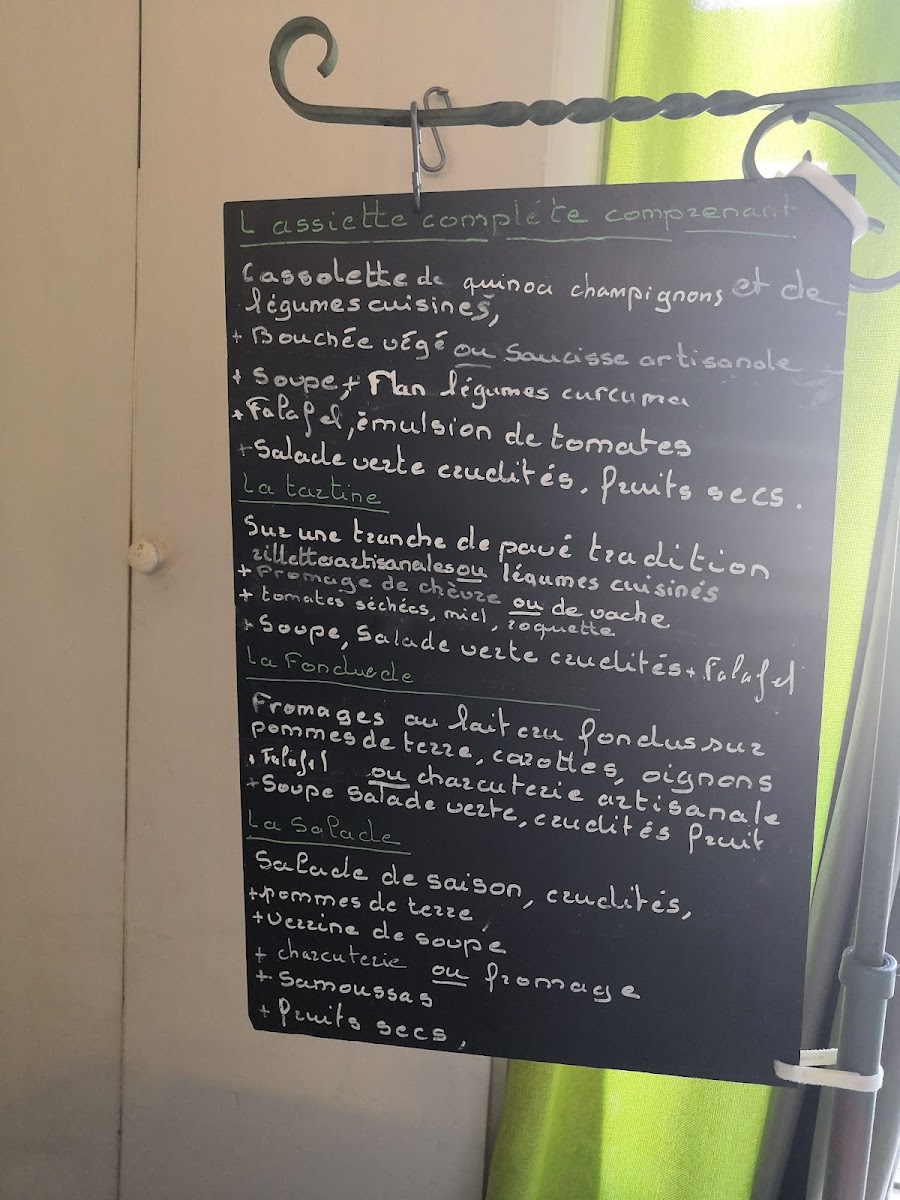 L assiette complète comprenant
Cassolette de quinoa champignons et de
légumes cuisines,
+ Bouchée végé ou Saucisse artisanale
+ Soupe, + Flan légumes curcuma
+ Falafel, émulsion de tomates
+ Salade verte crudités, fruits secs.
La tartine
Sur une tranche de pavé tradition
rillettes artisanales ou légumes cuisinés
+ fromage de chèvre ou de vache
+ tomates séchées, miel, roquette
+ Soupe, Salade verte crudités + Falafel
La Fonduede
Fromages au lait cru fondus sur
pommes de terre, carottes, oignons
+ Falafel ou charcuterie artisanale
+ Soupe salade verte, crudités fruit
La Salade
Salade de saison, crudités,
+ pommes de terre,
+ verrine de soupe
+ charcuterie ou fromage
+ Samoussas
+ fruits secs,